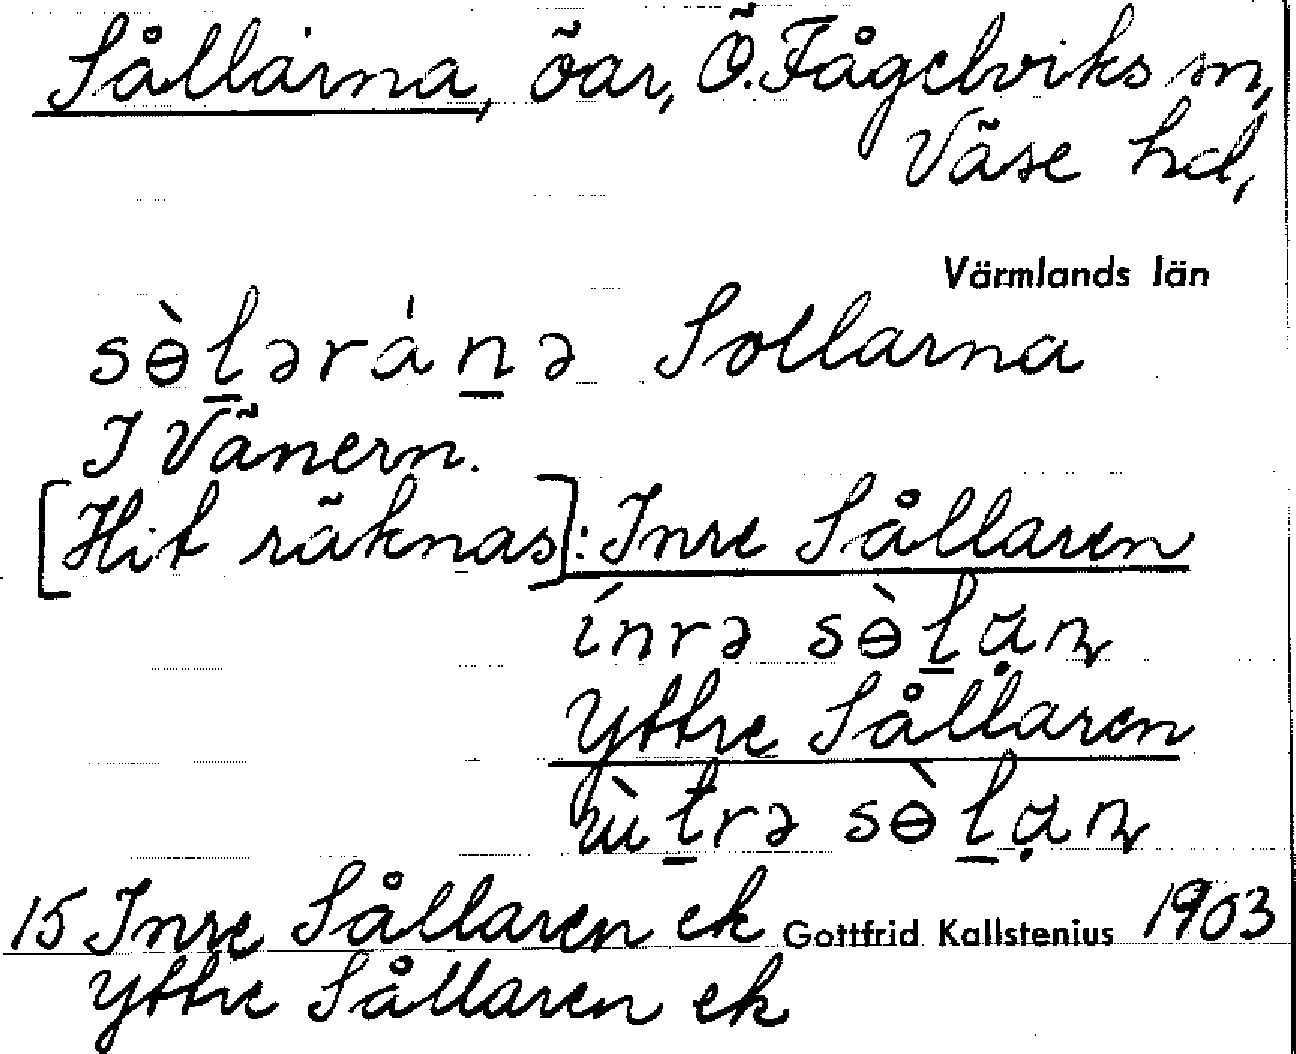 Sållarna, öar, Ö. Fågelviks sn,
Väse hd,
Värmlands län
sɵ̀l̲ərán̲ə Sollarna
I Vänern.
[Hit räknas]: Inre Sållaren
ínrə sɵ̀l̲ạɳ
Yttre Sållaren
ɯ̀t̲rə sɵ̀l̲ạɳ
15 Inre Sållaren ek Gottfrid Kallstenius 1903
Yttre Sållaren ek